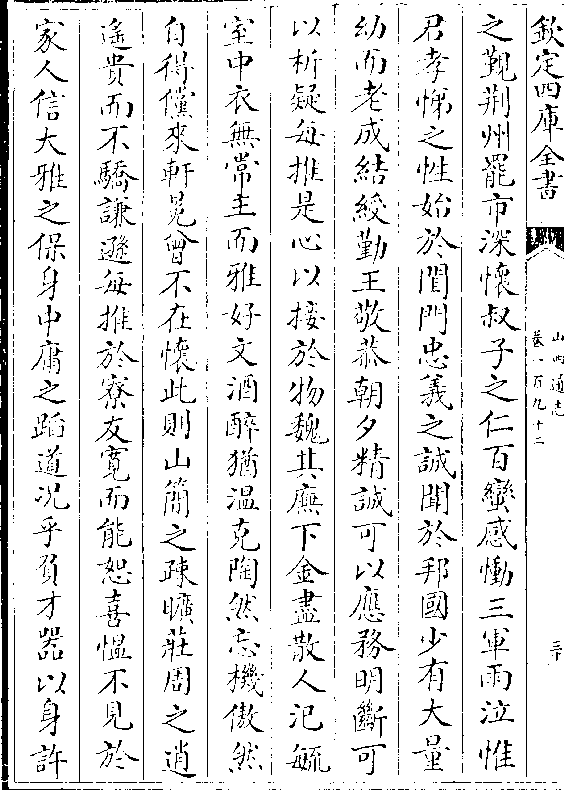 欽定四庫全書
山西通志
卷一百九十二
三十
之覲荆州罷市深懷叔子之仁百蠻感慟三軍雨泣惟
君孝悌之性始於閨門忠義之誠聞於邦國少有大量
幼而老成結綬勤王敬恭朝夕精誠可以應務明斷可
以析疑每推是心以接於物魏其廡下金盡散人氾毓
室中衣無常主而雅好文酒醉猶溫克陶然忘機傲然
自得儻來軒冕曾不在懷此則山簡之疎曠莊周之逍
遙貴而不驕謙遜每推於寮友寛而能恕喜愠不見於
家人信大雅之保身中庸之蹈道况乎負才器以身許